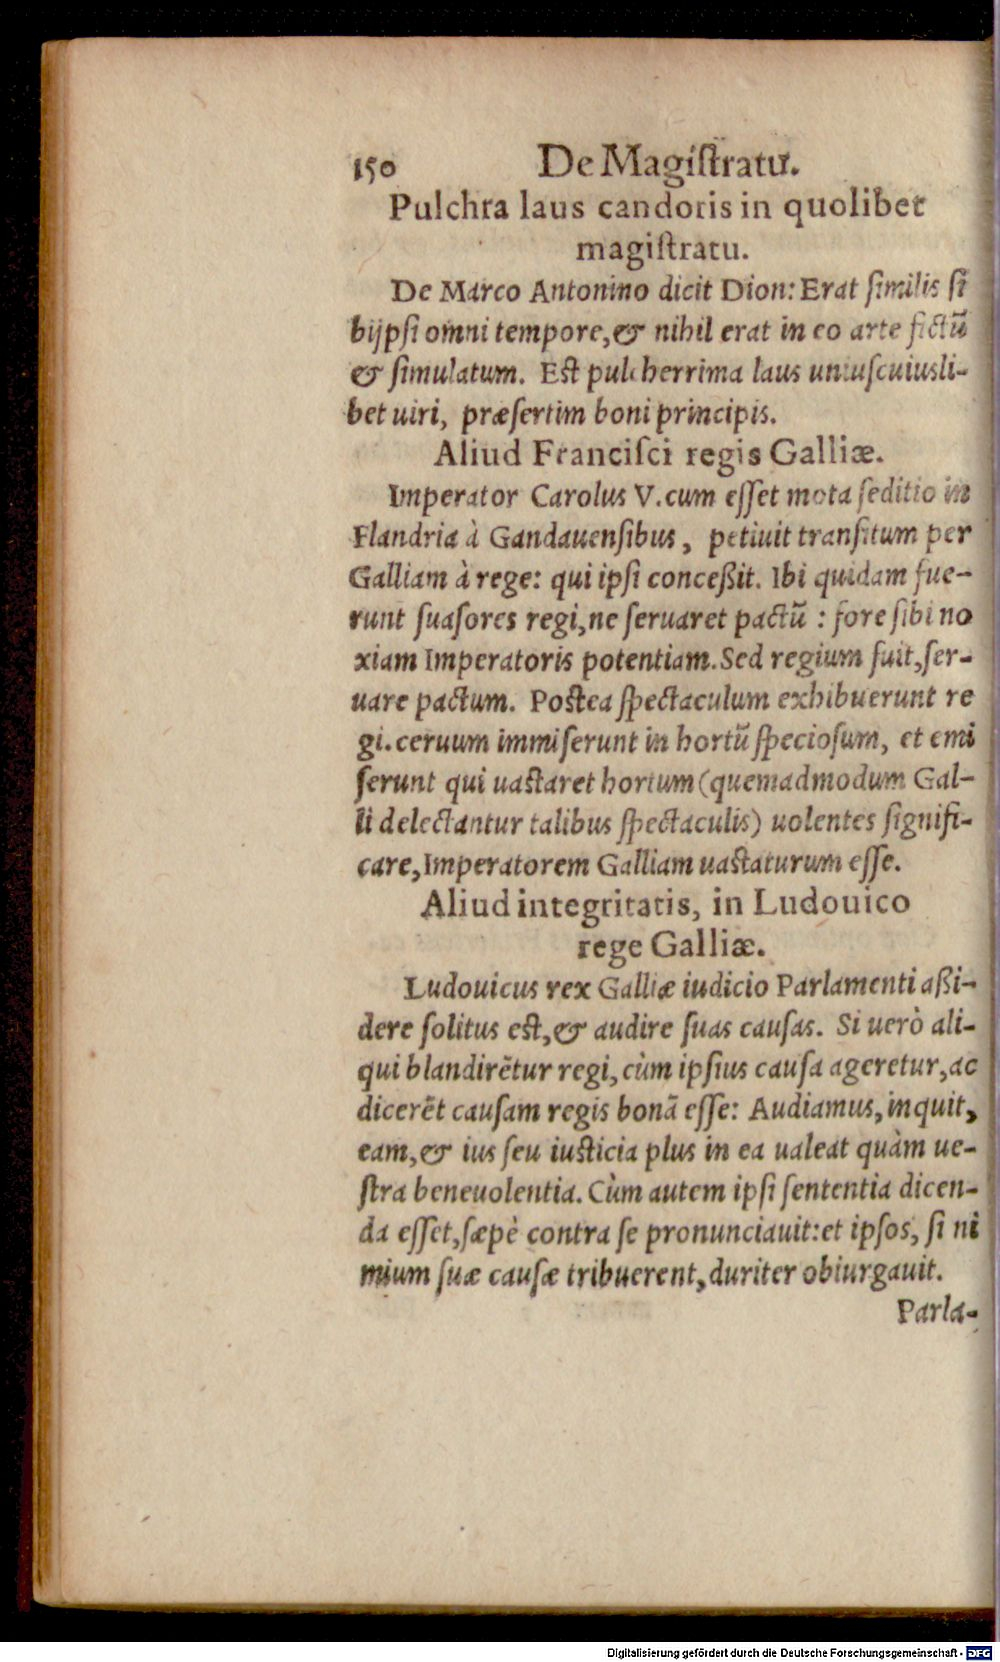 150 De Magiſtratu.
Pulchra laus candoris in quolibet
magiſtratu.
De Marco Antonino dicit Dion: Erat ſimilis ſi
bijpſi omni tempore, & nihil erat in eo arte fictũ
& ſimulatum. Eſt pulcherrima laus uniuſcuiusli-
bet uiri, præſertim boni principis.
Aliud Franciſci regis Galliæ.
Imperator Carolus V. cum eſſet mota ſeditio in
Flandria à Gandauenſibus, petiuit tranſitum per
Galliam à rege: qui ipſi conceßit. Ibi quidam fue-
runt ſuaſores regi, ne ſeruaret pactũ : fore ſibi no
xiam Imperatoris potentiam. Sed regium fuit, ſer-
uare pactum. Poſtea ſpectaculum exhibuerunt re
gi. ceruum immiſerunt in hortũ ſpecioſum, et emi
ſerunt qui uaſtaret hortum (quemadmodum Gal-
li delectantur talibus ſpectaculis) uolentes ſignifi-
care, Imperatorem Galliam uaſtaturum eſſe.
Aliud integritatis, in Ludouico
rege Galliæ.
Ludouicus rex Galliæ iudicio Parlamenti aßi-
dere ſolitus eſt, & audire ſuas cauſas. Si uerò ali-
qui blandirẽtur regi, cùm ipſius cauſa ageretur, ac
dicerẽt cauſam regis bonã eſſe: Audiamus, inquit,
eam, & ius ſeu iuſticia plus in ea ualeat quàm ue-
ſtra beneuolentia. Cùm autem ipſi ſententia dicen-
da eſſet, ſæpè contra ſe pronunciauit: et ipſos, ſi ni
mium ſuæ cauſæ tribuerent, duriter obiurgauit.
Parla-
Digitalisierung gefördert durch die Deutsche Forschungsgemeinschaft - DFG